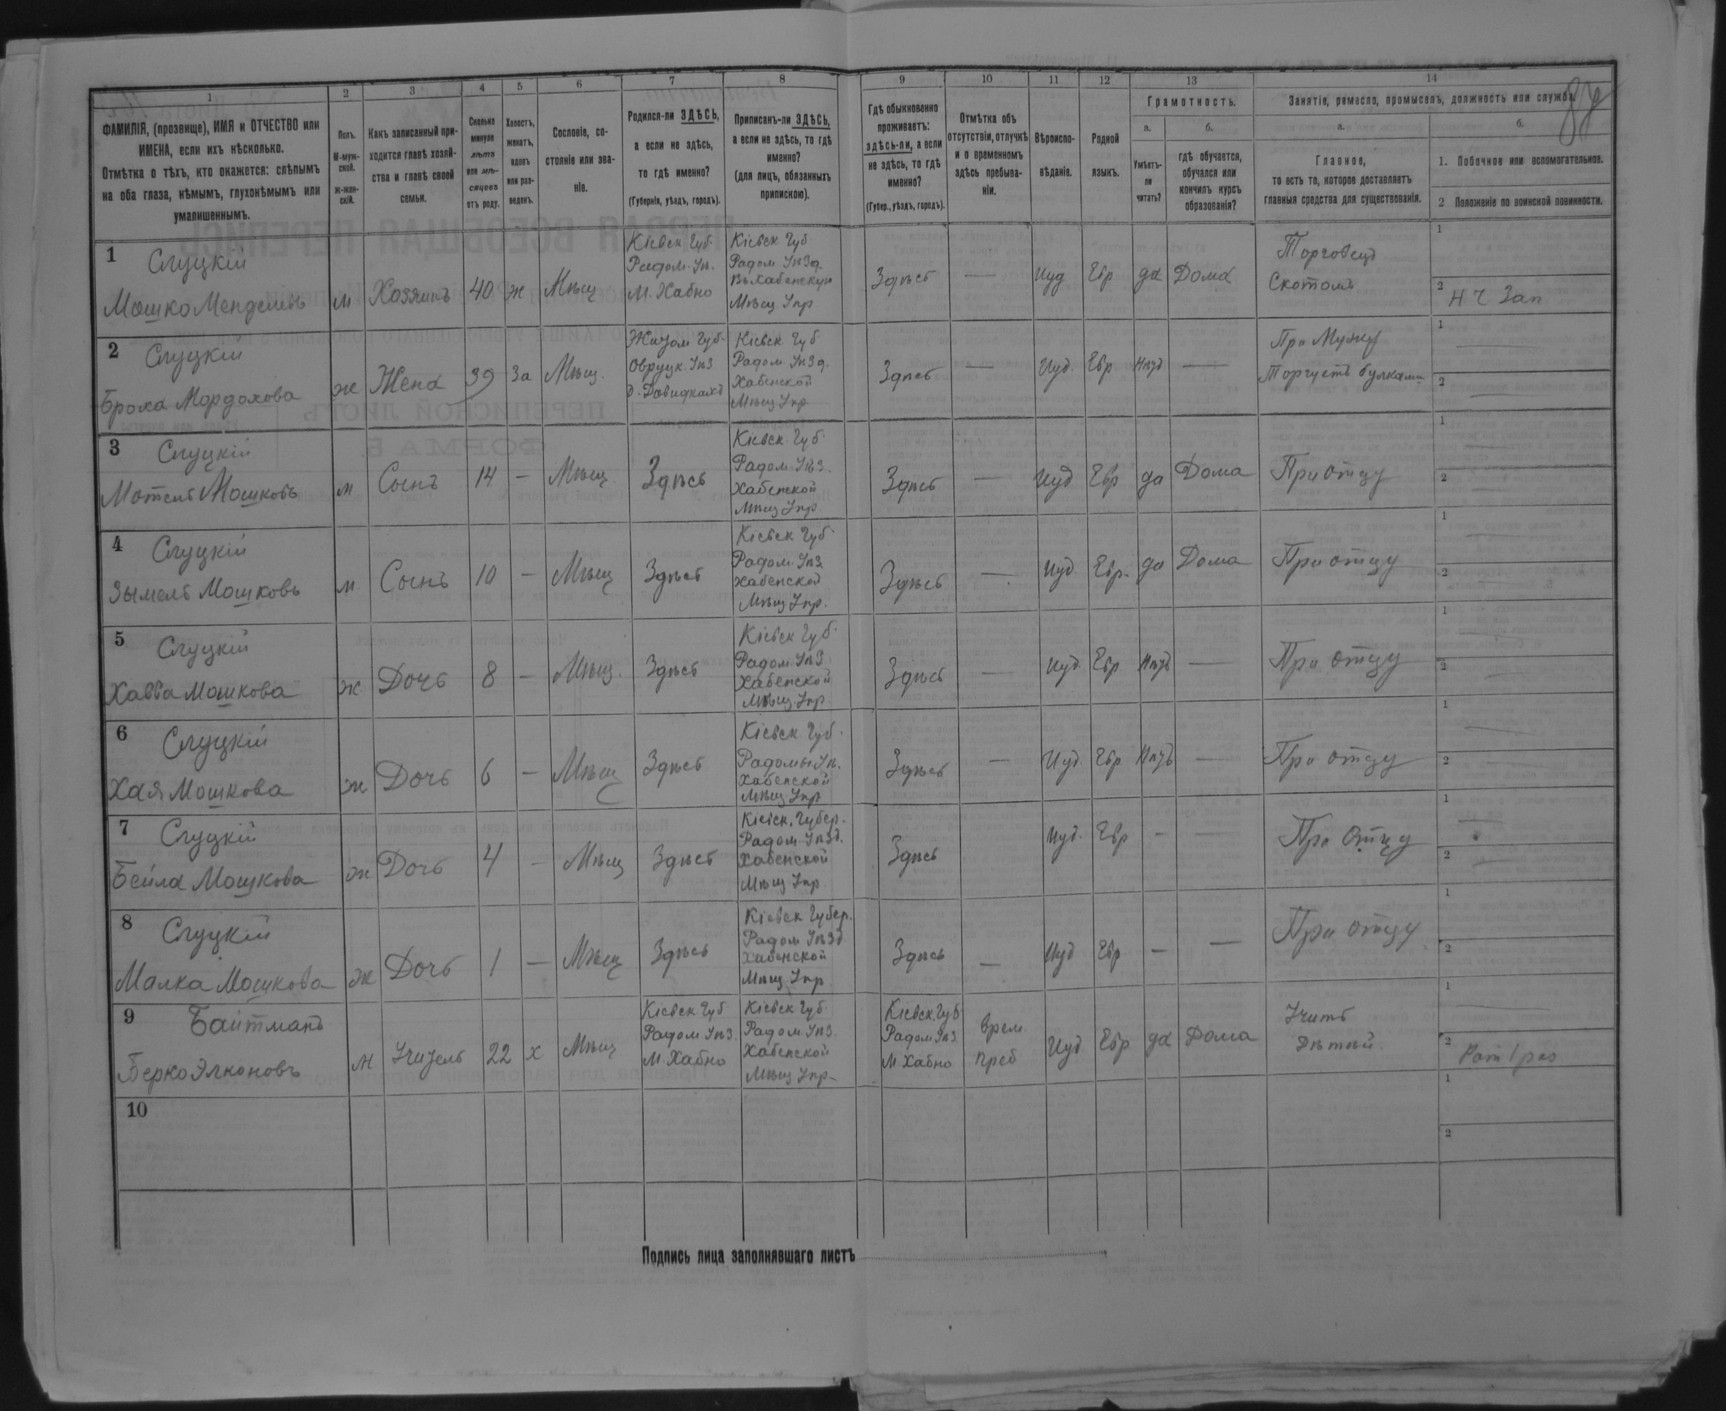 1 2 3 4 5 6 7 8 9 10 11 12 13 14
ФАМИЛІЯ, (прозвище), ИМЯ и ОТЧЕСТВО или ИМЕНА, если ихъ нѣсколько.
Отмѣтка о тѣхъ, кто окажется: слѣпымъ на оба глаза, нѣмымъ, глухонѣмымъ или умалишеннымъ.
Полъ.
М-мужской.
ж-женскій.
Какъ записанный приходится главѣ хозяйства и главѣ своей семьи.
Сколько минуло лѣтъ или мѣсяцевъ отъ роду.
Холостъ, женатъ, вдовъ или разведенъ.
Сословіе, состояніе или званіе.
Родился-ли ЗДѢСЬ, а если не здѣсь, то гдѣ именно?
(Губернія, уѣздъ, городъ).
Приписанъ-ли ЗДѢСЬ, а если не здѣсь, то гдѣ именно?
(для лицъ, обязанныхъ припискою).
Гдѣ обыкновенно проживаетъ: здѣсь-ли, а если не здѣсь, то гдѣ именно?
(Губер., уѣздъ, городъ).
Отмѣтка объ отсутствіи, отлучкѣ и о временномъ здѣсь пребываніи.
Вѣроисповѣданіе.
Родной языкъ.
Грамотность.
а.
Умѣетъ-ли читать?
б.
гдѣ обучается, обучался или кончилъ курсъ образованія?
Занятіе, ремесло, промыселъ, должность или служба.
а.
Главное,
то есть то, которое доставляетъ главныя средства для существованія.
б.
1. Побочное или вспомогательное.
2 Положеніе по воинской повинности.
1 Слуцкій
Мошко Менделевъ
м Хозяинъ 40 ж Мѣщ
Кіевск Губ.
Радом. Уѣ.
М. Хабно
Кіевск Губ
Радом. Уѣзд.
Въ Хабенскую
Мѣщ Упр
Здѣсь — Иуд Евр да Дома
Торговецъ
Скотомъ
1
2 Н Ч Зап
2 Слуцкій
Броха Мордохова
ж Жена 39 За Мѣщ.
Жит��м Губ.
Овруцк. Уѣз
Кіевск Губ
Радом Уѣзд.
Хабенской
Мѣщ Упр
Здѣсь — Иуд. Евр Нѣтъ —
При Мужѣ
Торгуетъ булками
1 —
2 —
3 Слуцкій
Мотель Мошковъ
м Сынъ 14 — Мѣщ. Здѣсь
Кіевск Губ
Радом. Уѣз.
Хабенской
Мѣщ Упр
Здѣсь — Иуд Евр да Дома При отцу
1 —
2 —
4 Слуцкій
Зымель Мошковъ
м Сынъ 10 — Мѣщ Здѣсь
Кіевск Губ.
Радом. Уѣз
Хабенской
Мѣщ Упр.
Здѣсь — Иуд. Евр. да Дома При отцу
1 —
2 —
5 Слуцкій
Хавва Мошкова
ж Дочь 8 — Мѣщ. Здѣсь
Кіевск Губ.
Радом. Уѣз
Хабенской
Мѣщ Упр
Здѣсь — Иуд. Евр Нѣтъ — При отцу
1 —
2 —
6 Слуцкій
Хая Мошкова
ж Дочь 6 — Мѣщ Здѣсь
Кіевск Губ.
Радомы Уѣ.
Хабенской
Мѣщ Упр
Здѣсь — Иуд. Евр Нѣтъ — При отцу
1 —
2 —
7 Слуцкій
Бейла Мошкова
ж Дочь 4 — Мѣщ Здѣсь
Кіевск. Губер.
Радом Уѣзд.
Хабенской
Мѣщ Упр.
Здѣсь Иуд. Евр — — При Отцу
1 —
2 —
8 Слуцкій
Малка Мошкова
ж Дочь 1 — Мѣщ Здѣсь
Кіевск Губер.
Радом Уѣзд
Хабенской
Мѣщ Упр
Здѣсь — Иуд Евр — — При отцу
1
2
9 Байтманъ
Берко Элконовъ
м Учитель 22 х Мѣщ
Кіевск Губ
Радом Уѣз.
М. Хабно
Кіевск Губ
Радом. Уѣз.
Хабенской
Мѣщ Упр.
Кіевск. Губ
Радом Уѣз
М Хабно
врем
преб
Иуд Евр да Дома
Учить
Дѣтѣй
1 —
2
10
1
2
Подпись лица заполнявшаго листъ